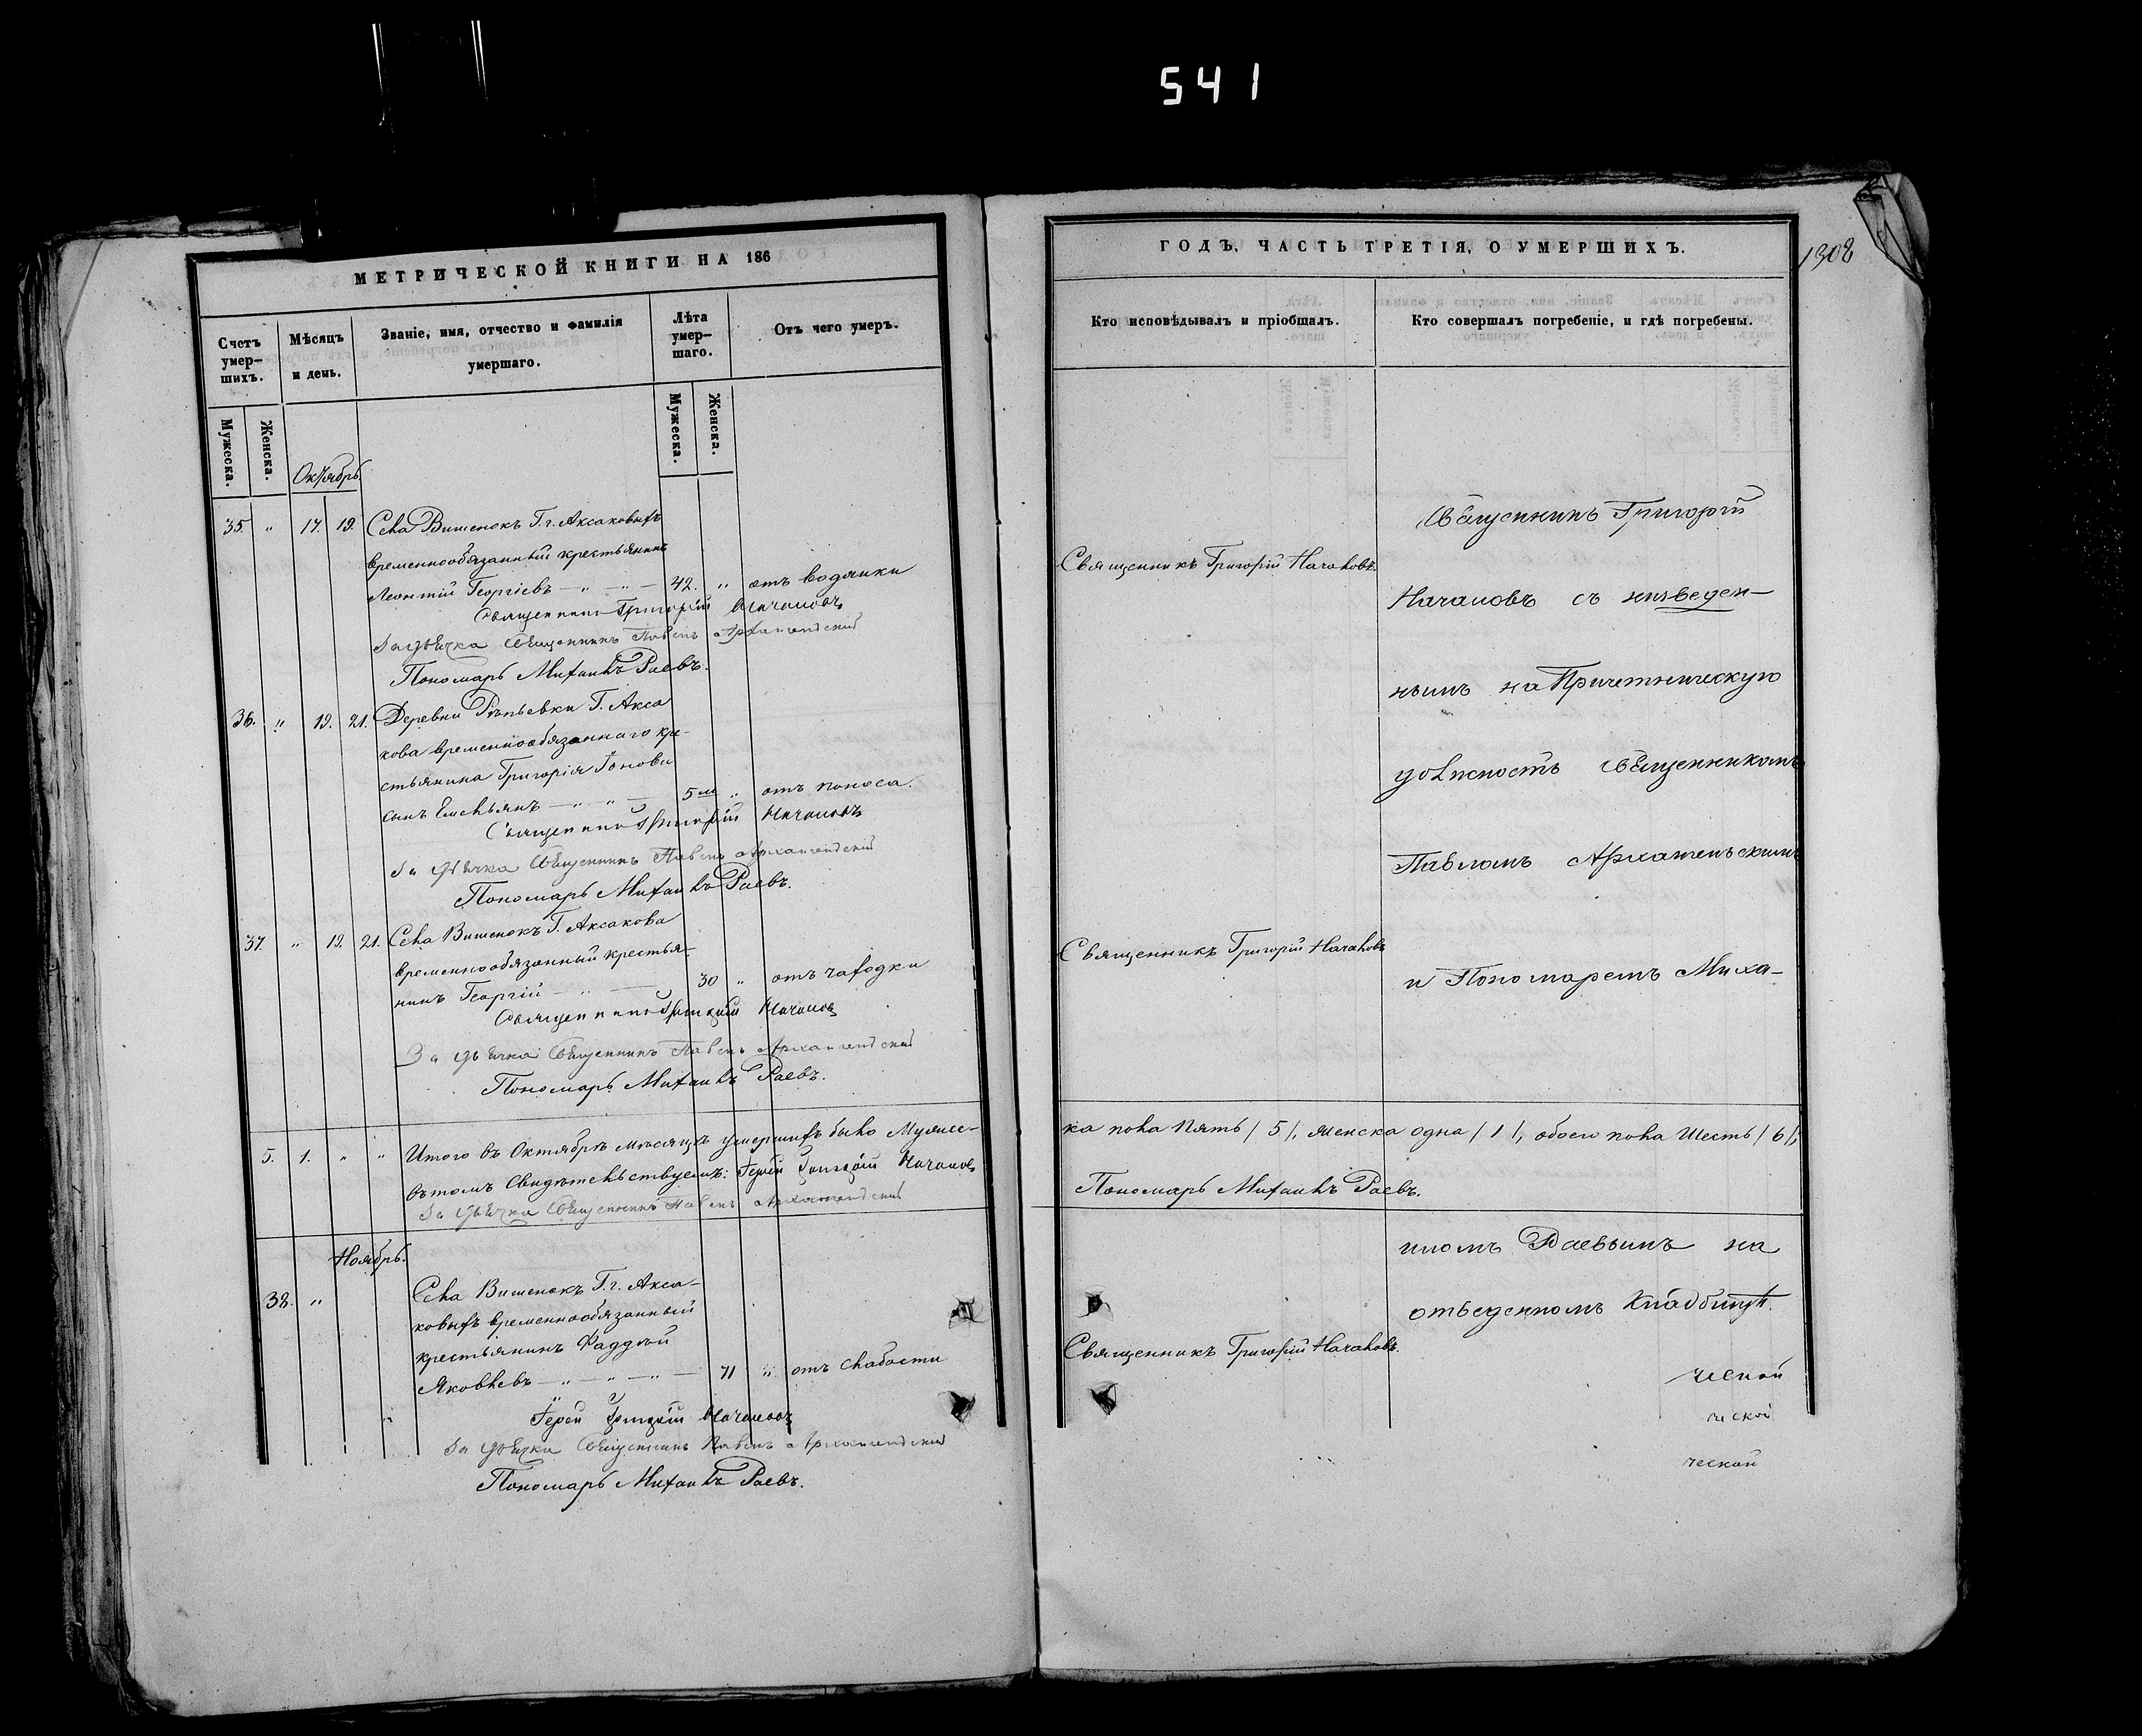 541
МЕТРИЧЕСКОЙ КНИГИ НА 186
Счетъ умер-шихъ.
Мѣсяцъ и день.
Званіе, имя, отчество и фамилія умершаго.
Лѣта умер-шаго.
Отъ чего умеръ.
Мужеска.
Женска.
Мужеска.
Женска.
Октябрь.
35. " 17. 19. Села Вишенокъ Г.г. Аксаковыхъ
временнообязанный крестьянинъ
Леонтій Георгіевъ — " — " — 42. " отъ водянки
Священникъ Григорій Началовъ
За дьячка Священникъ Павелъ Архангельскій
Пономарь Михаилъ Раевъ.
36. " 19. 21. Деревни Репьевки Г. Акса
кова временнообязаннаго кре-
стьянина Григорія Іонова
сынъ Емельянъ — " — " — 5 " отъ поноса.
Священникъ Григорій Началовъ
За дьячка Священникъ Павелъ Архангельскій
Пономарь Михаилъ Раевъ.
37. " 19. 21. Села Вишенокъ Г. Аксакова
временнообязанный крестья-
нинъ Георгій — " — 30 " отъ чаходки
Священникъ Григорій Началовъ
За дьячка Священникъ Павелъ Архангельскій
Пономарь Михаилъ Раевъ.
5. 1. " " Итого въ Октябрѣ мѣсяцѣ умершихъ было Мужес-
Въ томъ Свидѣтельствуемъ: Іерей Григорій Началовъ
За дьячка Священникъ Павелъ Архангельскій
Ноябрь.
38. " Села Вишенокъ Г.г. Акса-
ковыхъ временнообязанный
крестьянинъ Фаддѣй
Яковлевъ — " — " — " — 71 " отъ слабости
Іерей Григорій Началовъ
За дьячка Священникъ Павелъ Архангельскій
Пономарь Михаилъ Раевъ.
ГОДЪ, ЧАСТЬ ТРЕТІЯ, О УМЕРШИХЪ.
1308
Кто исповѣдывалъ и пріобщалъ.
Кто совершалъ погребеніе, и гдѣ погребены.
Священникъ Григорій Началовъ.
Священникъ Григорій
Началовъ съ низведен-
нымъ на Причетническую
должность Священникомъ
Павломъ Архангельскимъ
Священникъ Григорій Началовъ
и Пономаремъ Миха-
ка пола Пять /5/, женска одна /1/, обоего пола Шесть /6/,
Пономарь Михаилъ Раевъ.
иломъ Раевымъ на
отведенномъ Кладбищѣ.
Священникъ Григорій Началовъ.
ческой
ческой
ческой